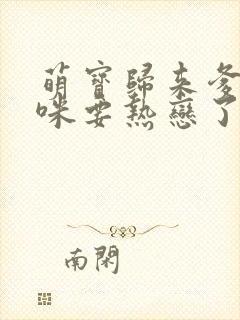 萌寶歸來爹
咪要熱戀了
南閑